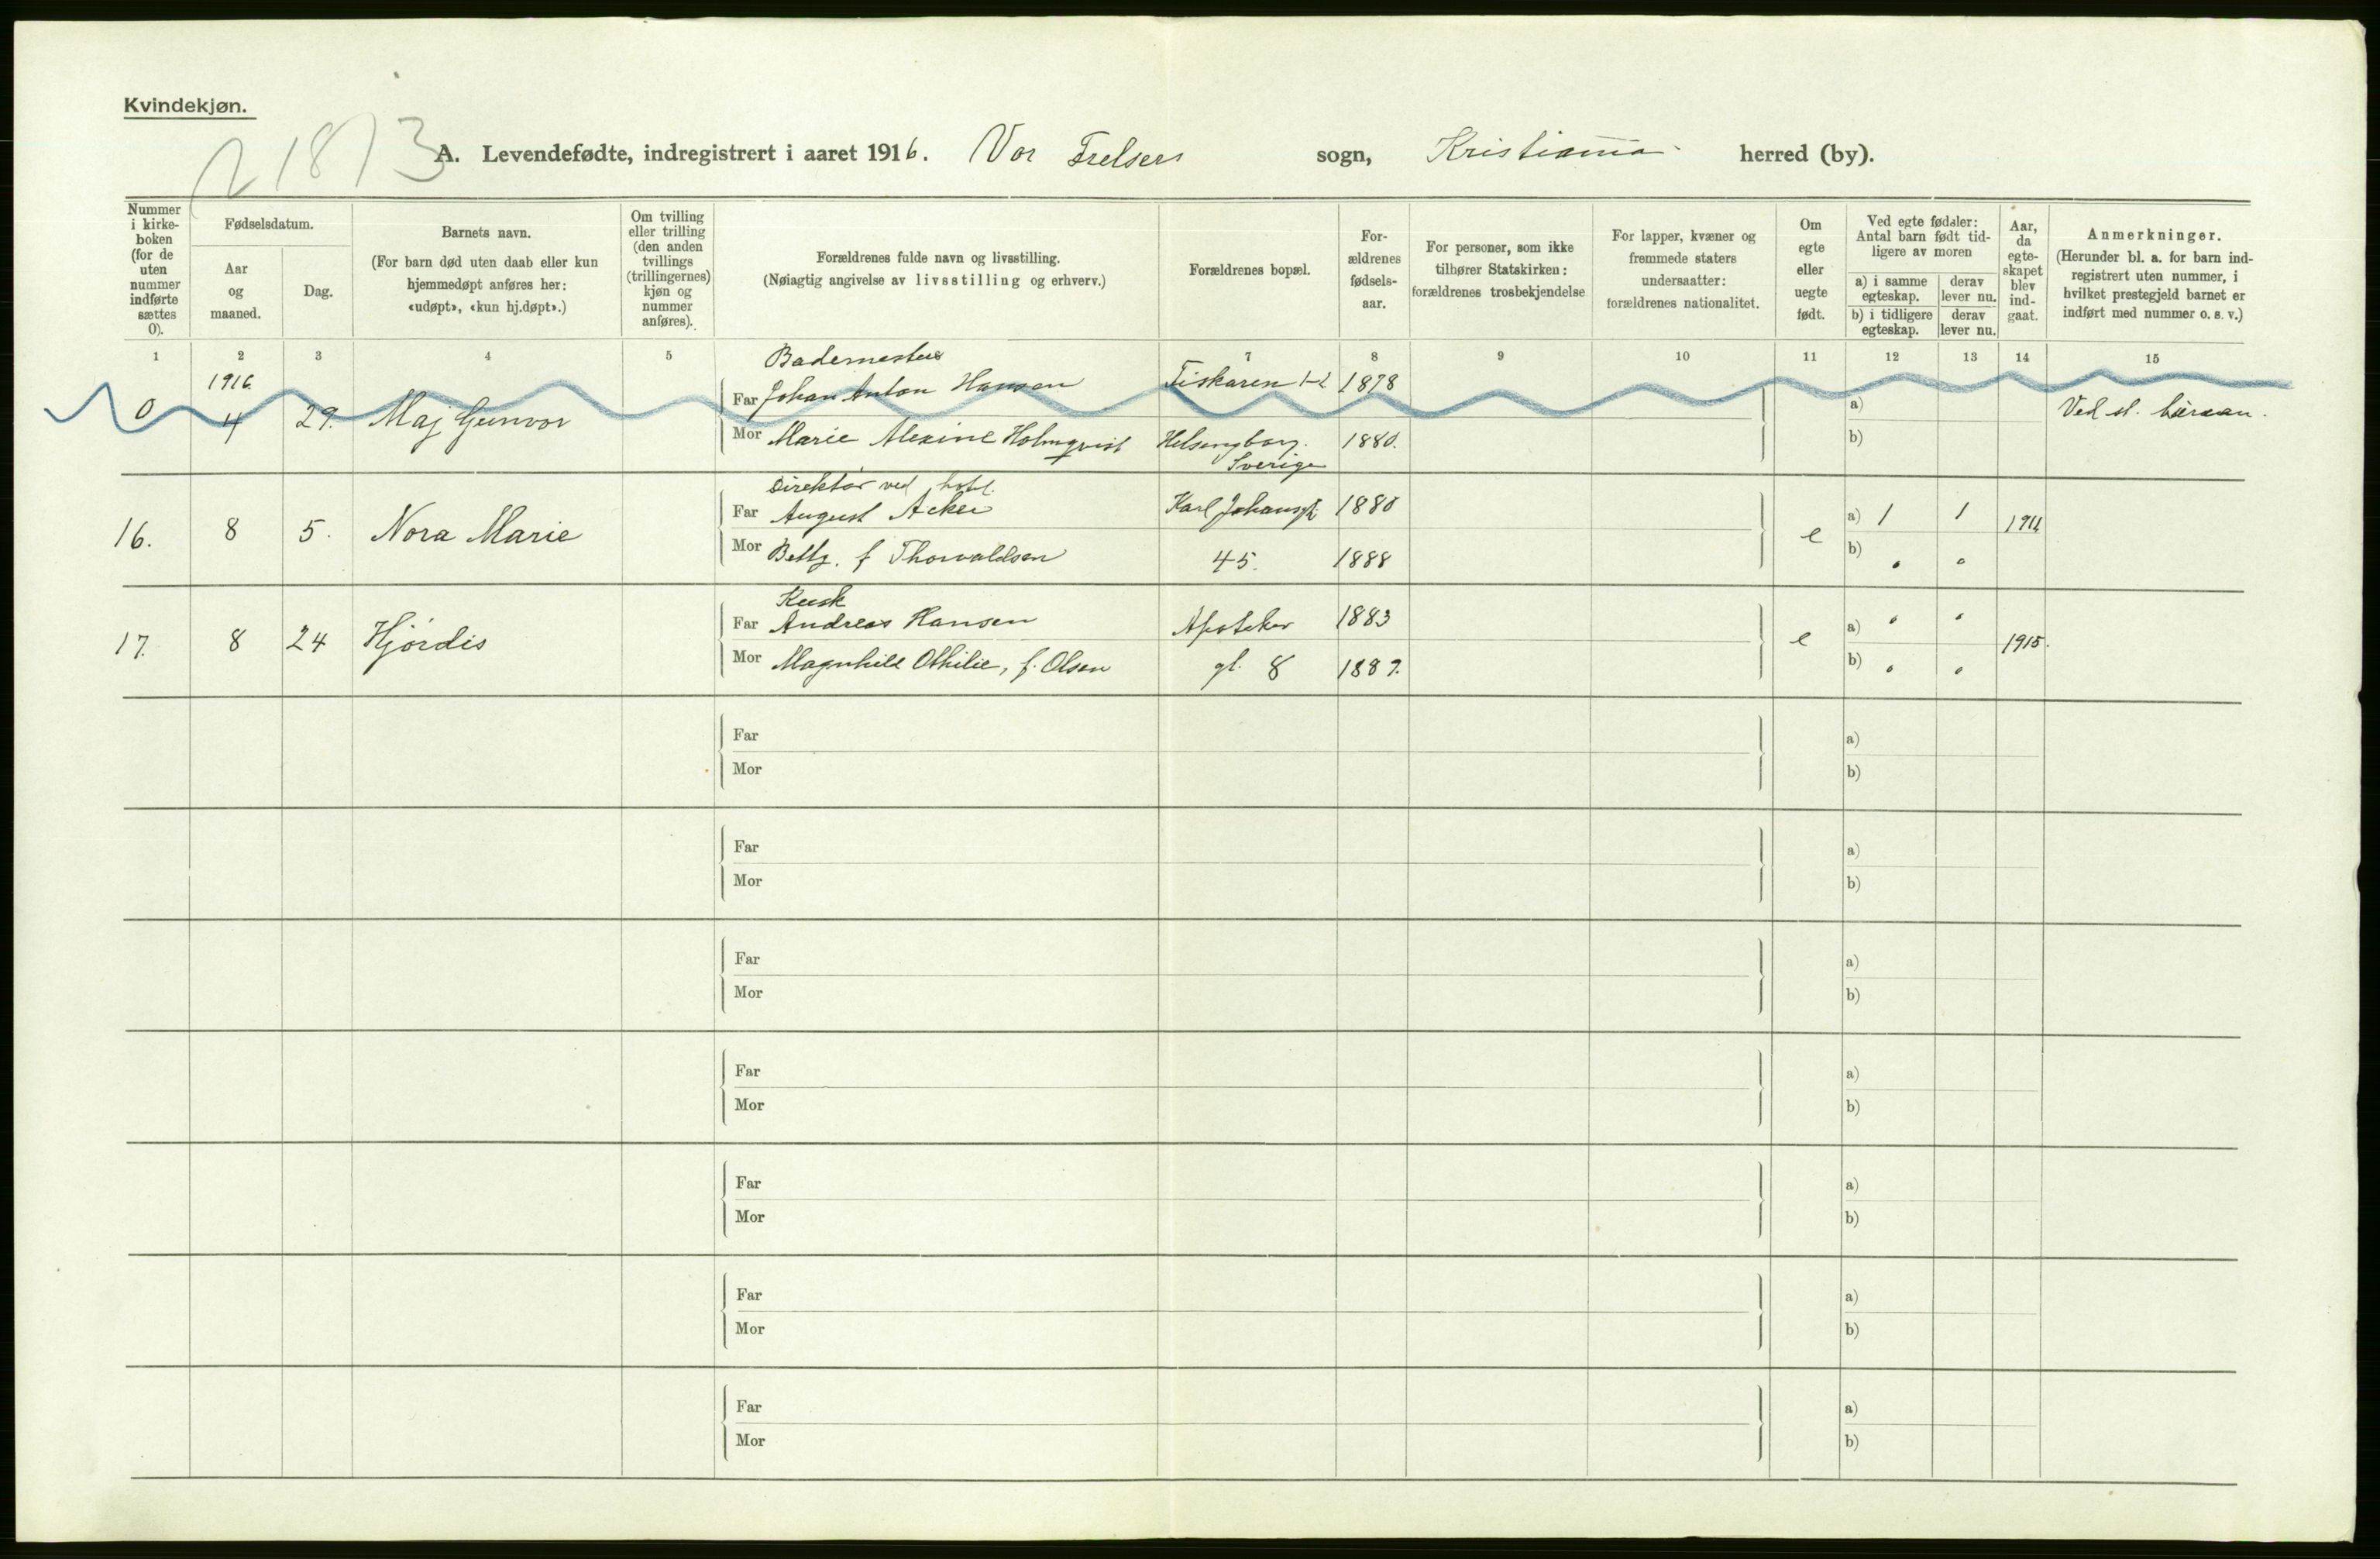 Kvindekjøn.
A. Levendefødte, indregistrert i aaret 1916. Vor Frelsers sogn, Kristiania herred (by).
Nummer i kirke-boken (for de uten nummer indførte sættes 0).
Fødselsdatum.
Aar og maaned.
Dag.
Barnets navn.
(For barn død uten daab eller kun hjemmedøpt anføres her: «udøpt», «kun hj.døpt».)
Om tvilling eller trilling (den anden tvillings (trillingernes) kjøn og nummer anføres).
Forældrenes fulde navn og livsstilling.
(Nøiagtig angivelse av livsstilling og erhverv.)
Forældrenes bopæl.
For-ældrenes fødsels-aar.
For personer, som ikke tilhører Statskirken: forældrenes trosbekjendelse
For lapper, kvæner og fremmede staters undersaatter: forældrenes nationalitet.
Om egte eller uegte født.
Ved egte fødsler: Antal barn født tid-ligere av moren
a) i samme egteskap.
derav lever nu.
b) i tidligere egteskap.
derav lever nu.
Aar, da egte-skapet blev ind-gaat.
Anmerkninger.
(Herunder bl. a. for barn ind-registrert uten nummer, i hvilket prestegjeld barnet er indført med nummer o. s. v.)
1 2 3 4 5 7 8 9 10 11 12 13 14 15
1916
Bademester
0 4 29. Maj Gunvor Far Johan Anton Hansen 1878 a) Ved st.
Mor Marie Alexine Holmqvist Helsingborg. Sverige 1880. b)
Direktør ved hotel.
16. 8 5. Nora Marie Far August Acker Karl Johansgt. 1880 e a) 1 1 1911
Mor Betty. f Thorvaldsen 45. 1888 b) " "
Kusk
17. 8 24 Hjördis Far Andreas Hansen Apoteker 1883 e a) " " 1915.
Mor Magnhild Othilie, f. Olsen gt. 8 1887. b) " "
Far a)
Mor b)
Far a)
Mor b)
Far a)
Mor b)
Far a)
Mor b)
Far a)
Mor b)
Far a)
Mor b)
Far a)
Mor b)